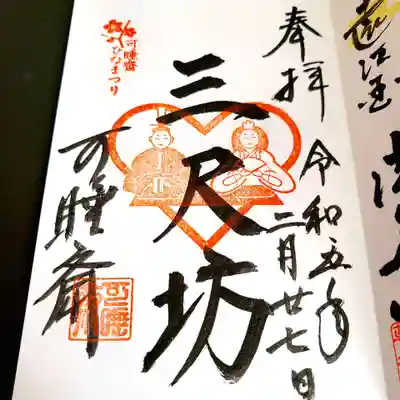 奉拝
令和五年
二月廿七日
三尺坊
可睡齋
ひなまつり
可睡斎